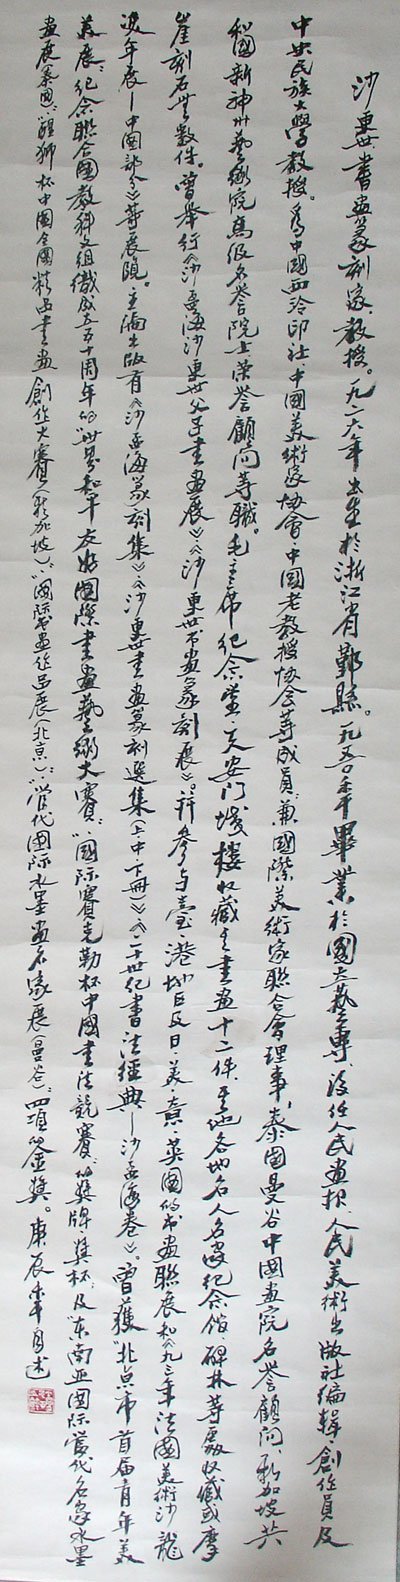 沙更世書畫篆刻家、教授。一九二六年出生於浙江省鄞縣。一九五〇年畢業於國立藝專，後任人民畫報、人民美術出版社編輯創作員及
中央民族大學教授。為中國西泠印社、中國美術家協會、中國老教授協会等成員，兼國際美術家聯合會理事，泰國曼谷中國畫院名誉顧問，新加坡共
和國新神州藝術院高级名誉院士荣誉顧问等職。毛主席纪念堂、天安门城楼收藏其書画十二件，其他各地名人名家纪念馆、碑林等處收藏或摩
崖刻石甚數件。曾舉行《沙孟海沙更世父子書画展》《沙更世书画篆刻展》。并参与臺港地区及日、美、意、英國的书畫聯展和《九三年法國美術沙龍
双年展—中國部分》等展覽。主编出版有《沙孟海篆刻集》《沙更世書画篆刻選集（上、中、下冊）》《二十世纪書法經典—沙孟海卷》。曾獲"北京市首届青年美
美展"，"纪念聯合國教科文组織成立五十周年的"世界和平友好國際書画藝術大赛"，"國际賽克勒杯中國書法競賽"的奖牌奖杯，及"东南亚国际當代名家水墨
画展"，"醒狮杯中國全國精品書画創作大賽（新加坡）"，"國际书画作品展（北京）"，"當代國际水墨画名家展（曼谷）"四項金奖。庚辰年自述